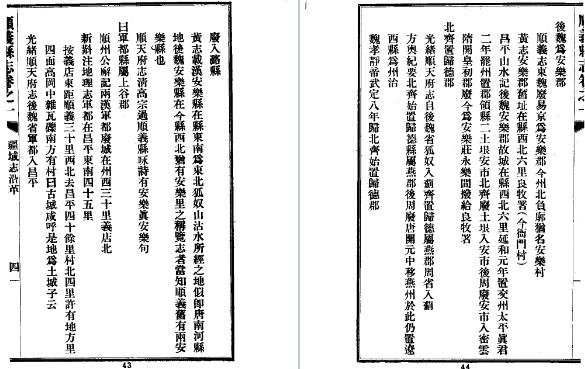 廢入潞縣
黃志載漢安樂縣在縣東南爲東北狐奴山沽水所經之地似卽唐南河縣
地後魏安樂縣在今縣西北猶有安樂里之稱覽志者當知順義舊有兩安
樂縣也
順天府志清高宗過順義縣咏詩有安樂眞安樂句
曰軍都縣屬上谷郡
順州公廨記兩漢軍都廢城在州西三十里義店北
新斠注地理志軍都在昌平東南四十五里
按義店東距順義三十里西北去昌平四十餘里村北四里許有地方里
四面高岡中雜瓦礫南方有村曰古城咸呼是地爲土城子云
光緒順天府志後魏省軍都入昌平
順義縣志卷之一
疆域志沿革
四
43
順義縣志卷之一
後魏爲安樂郡
順義志東魏廢易京爲安樂郡今州北負廓猶名安樂村
黃志安樂郡舊址在縣西北六里良牧署（今衙門村）
昌平山水記後魏安樂郡故城在縣西北六里延和元年置交州太平眞君
二年罷州置郡領縣二土垠安市北齊廢土垠入安市後周廢安市入密雲
隋開皇初郡廢今爲安樂莊永樂間撥給良牧署
北齊置歸德郡
光緒順天府志自後魏省狐奴入薊齊置歸德屬燕郡周省入薊
方輿紀要北齊始置歸德縣屬燕郡後周廢唐開元中移燕州於此仍置遼
西縣爲州治
魏孝靜帝武定八年歸北齊始置歸德郡
44